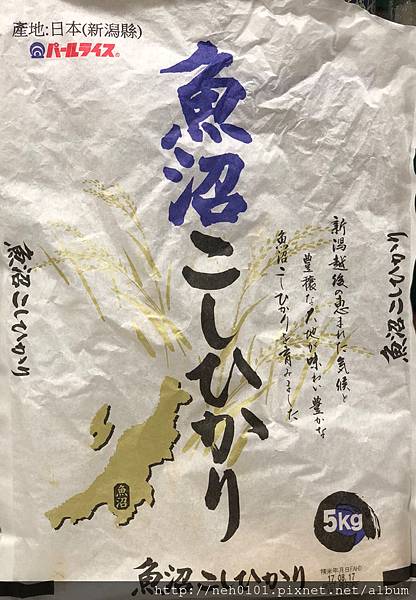 產地:日本(新潟縣)
パールライス®
魚沼
こしひかり
新潟越後の恵まれた気候と
豊穣な大地が味わい豊かな
魚沼こしひかりを育みました
魚沼こしひかり
魚沼こしひかり
魚沼
5kg
精米年月日
17.08.17
魚沼こしひかり
http://neh0101.pixnet.net/album